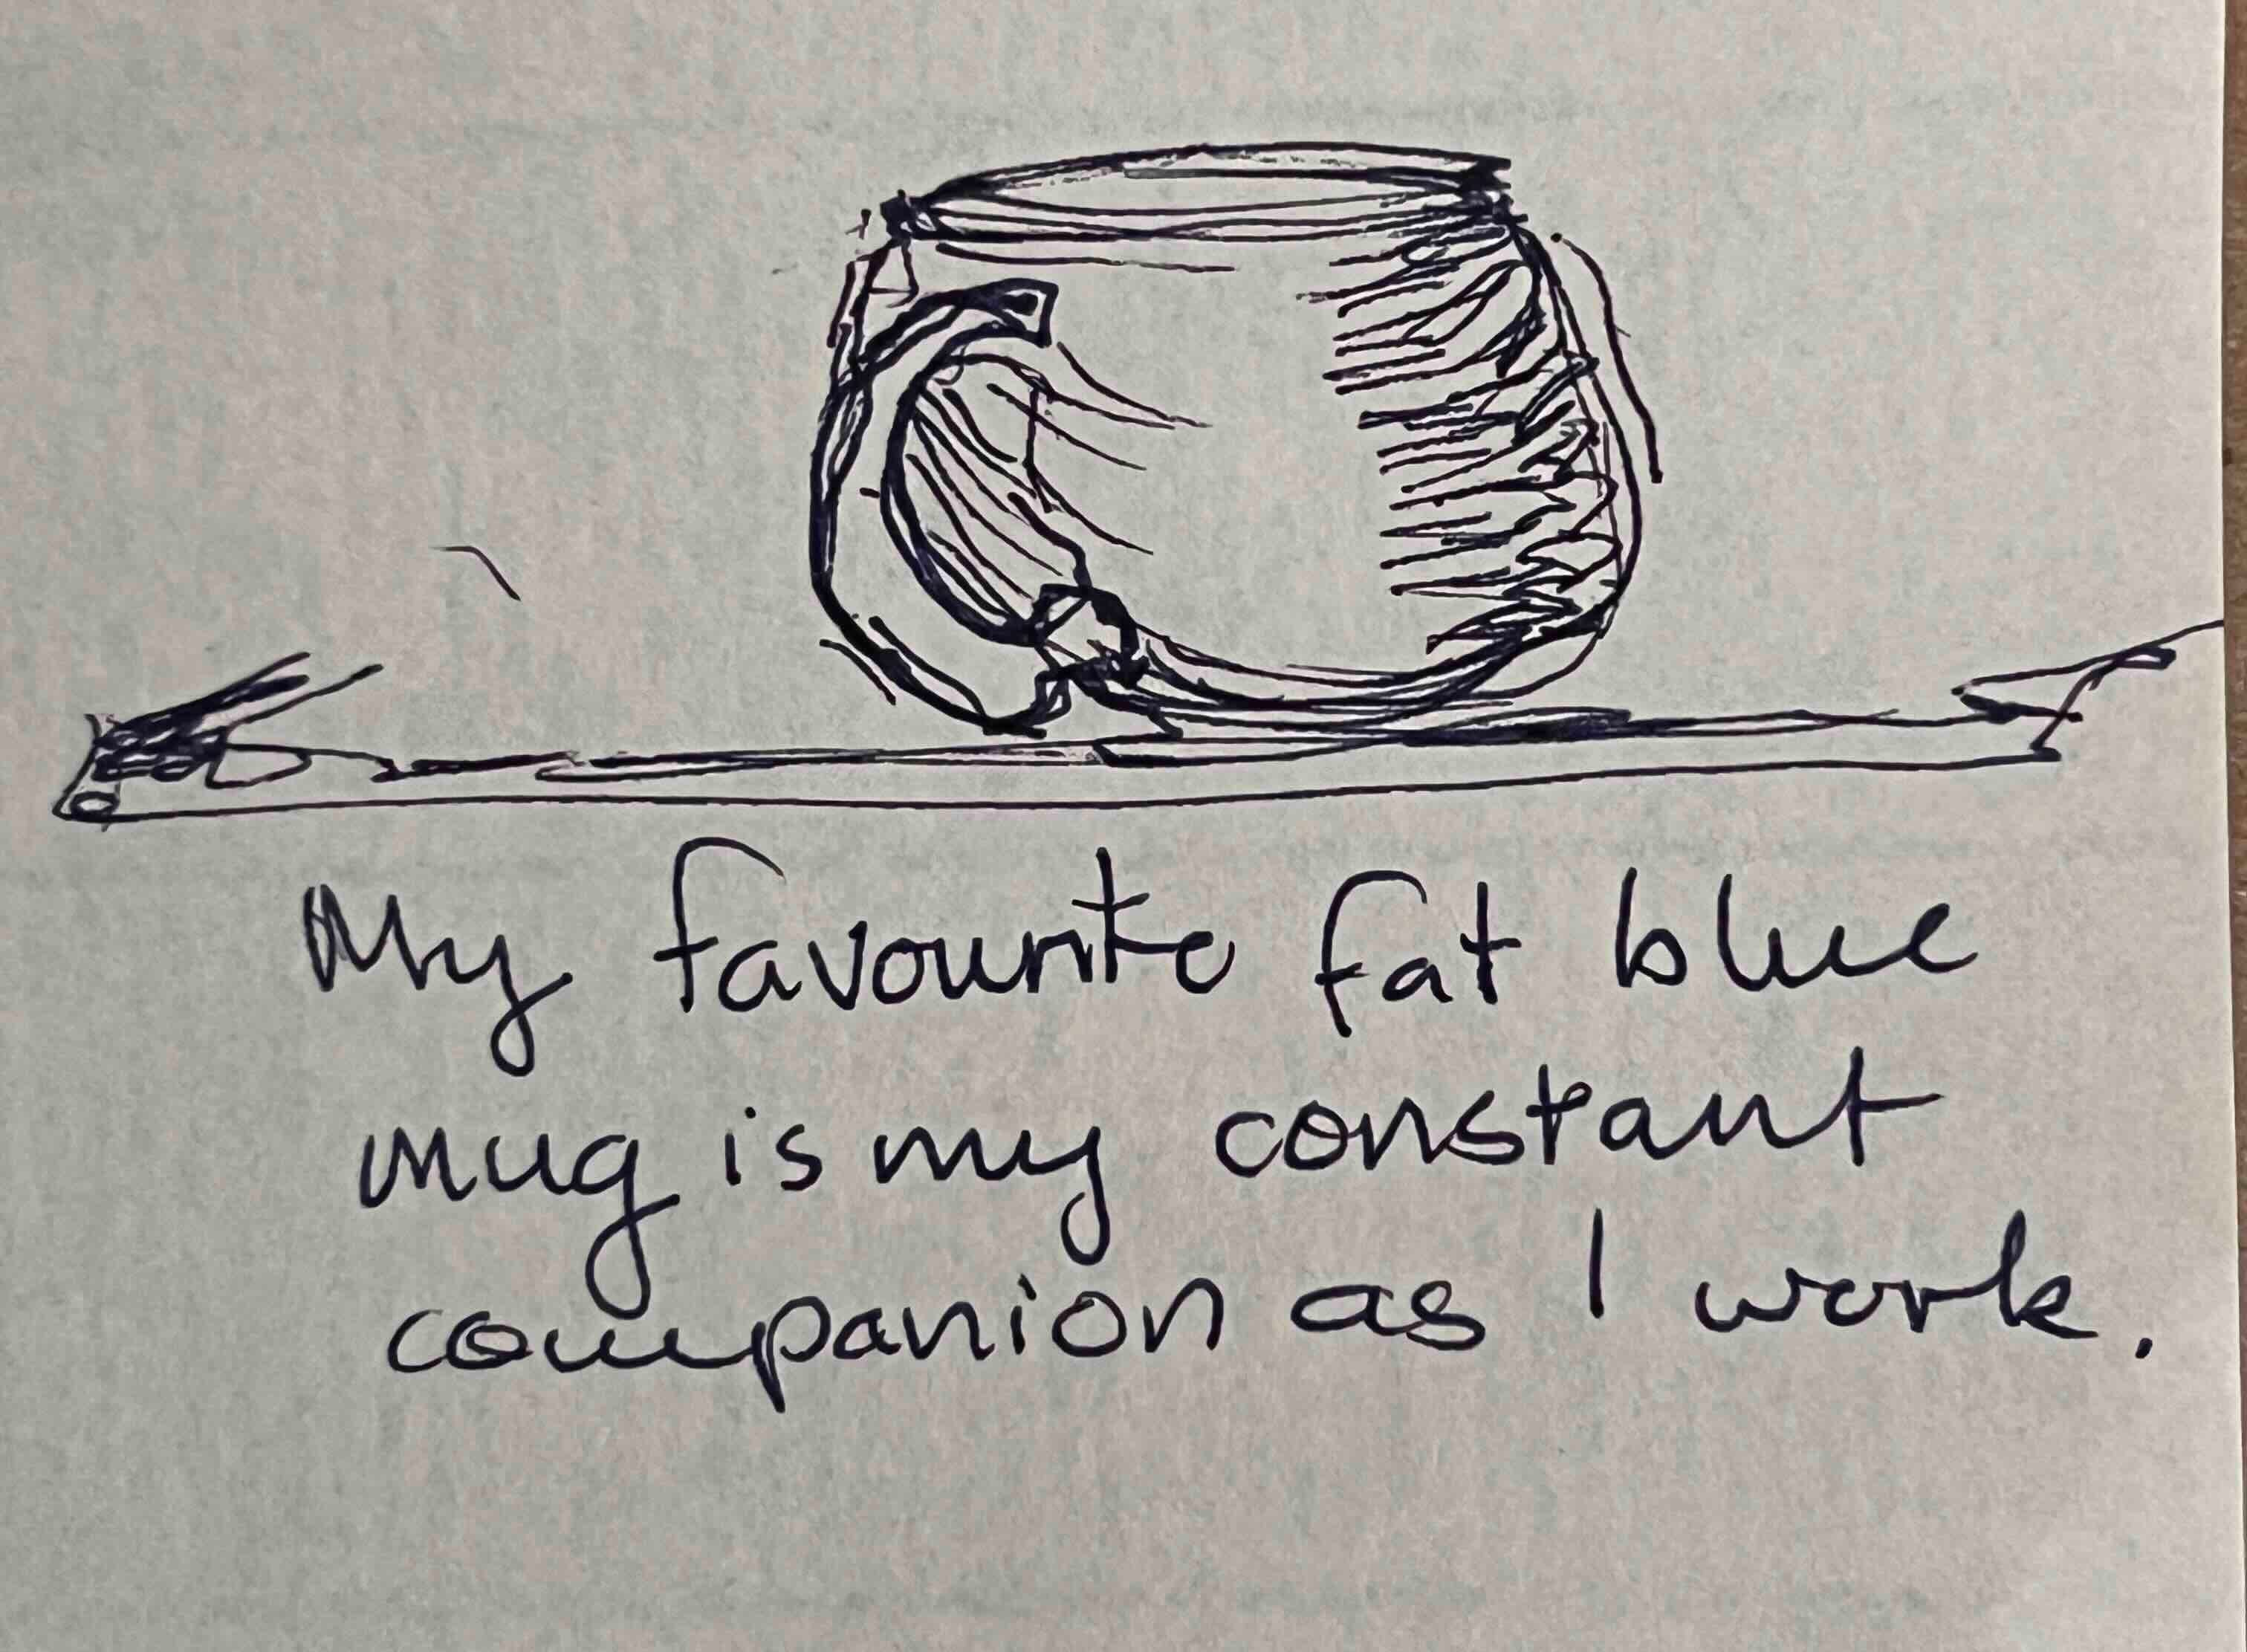 My favourite fat blue
mug is my constant
companion as I work.